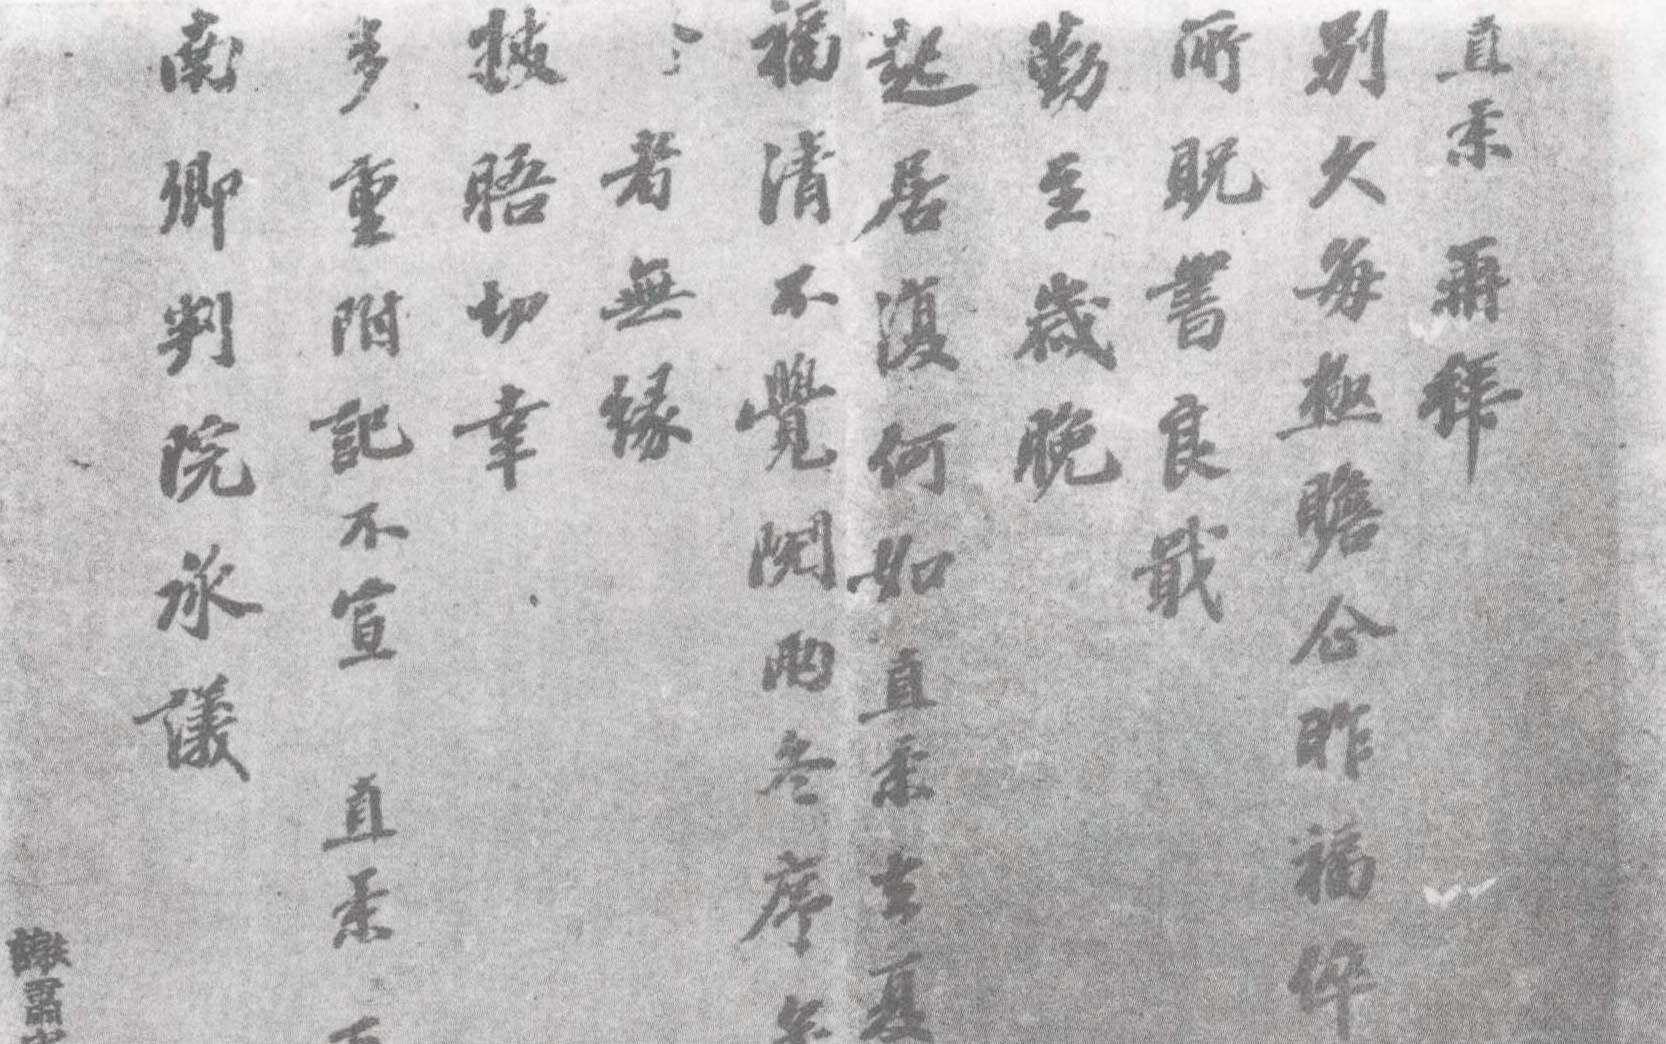 直柔再拜
別久每極瞻仰昨福倅
所貺書良戢
勤至歲晚
起居復何如直柔去夏
福清不覺閱兩冬序
者無緣
披晤切幸
多重附記不宣 直柔
南卿判院承議